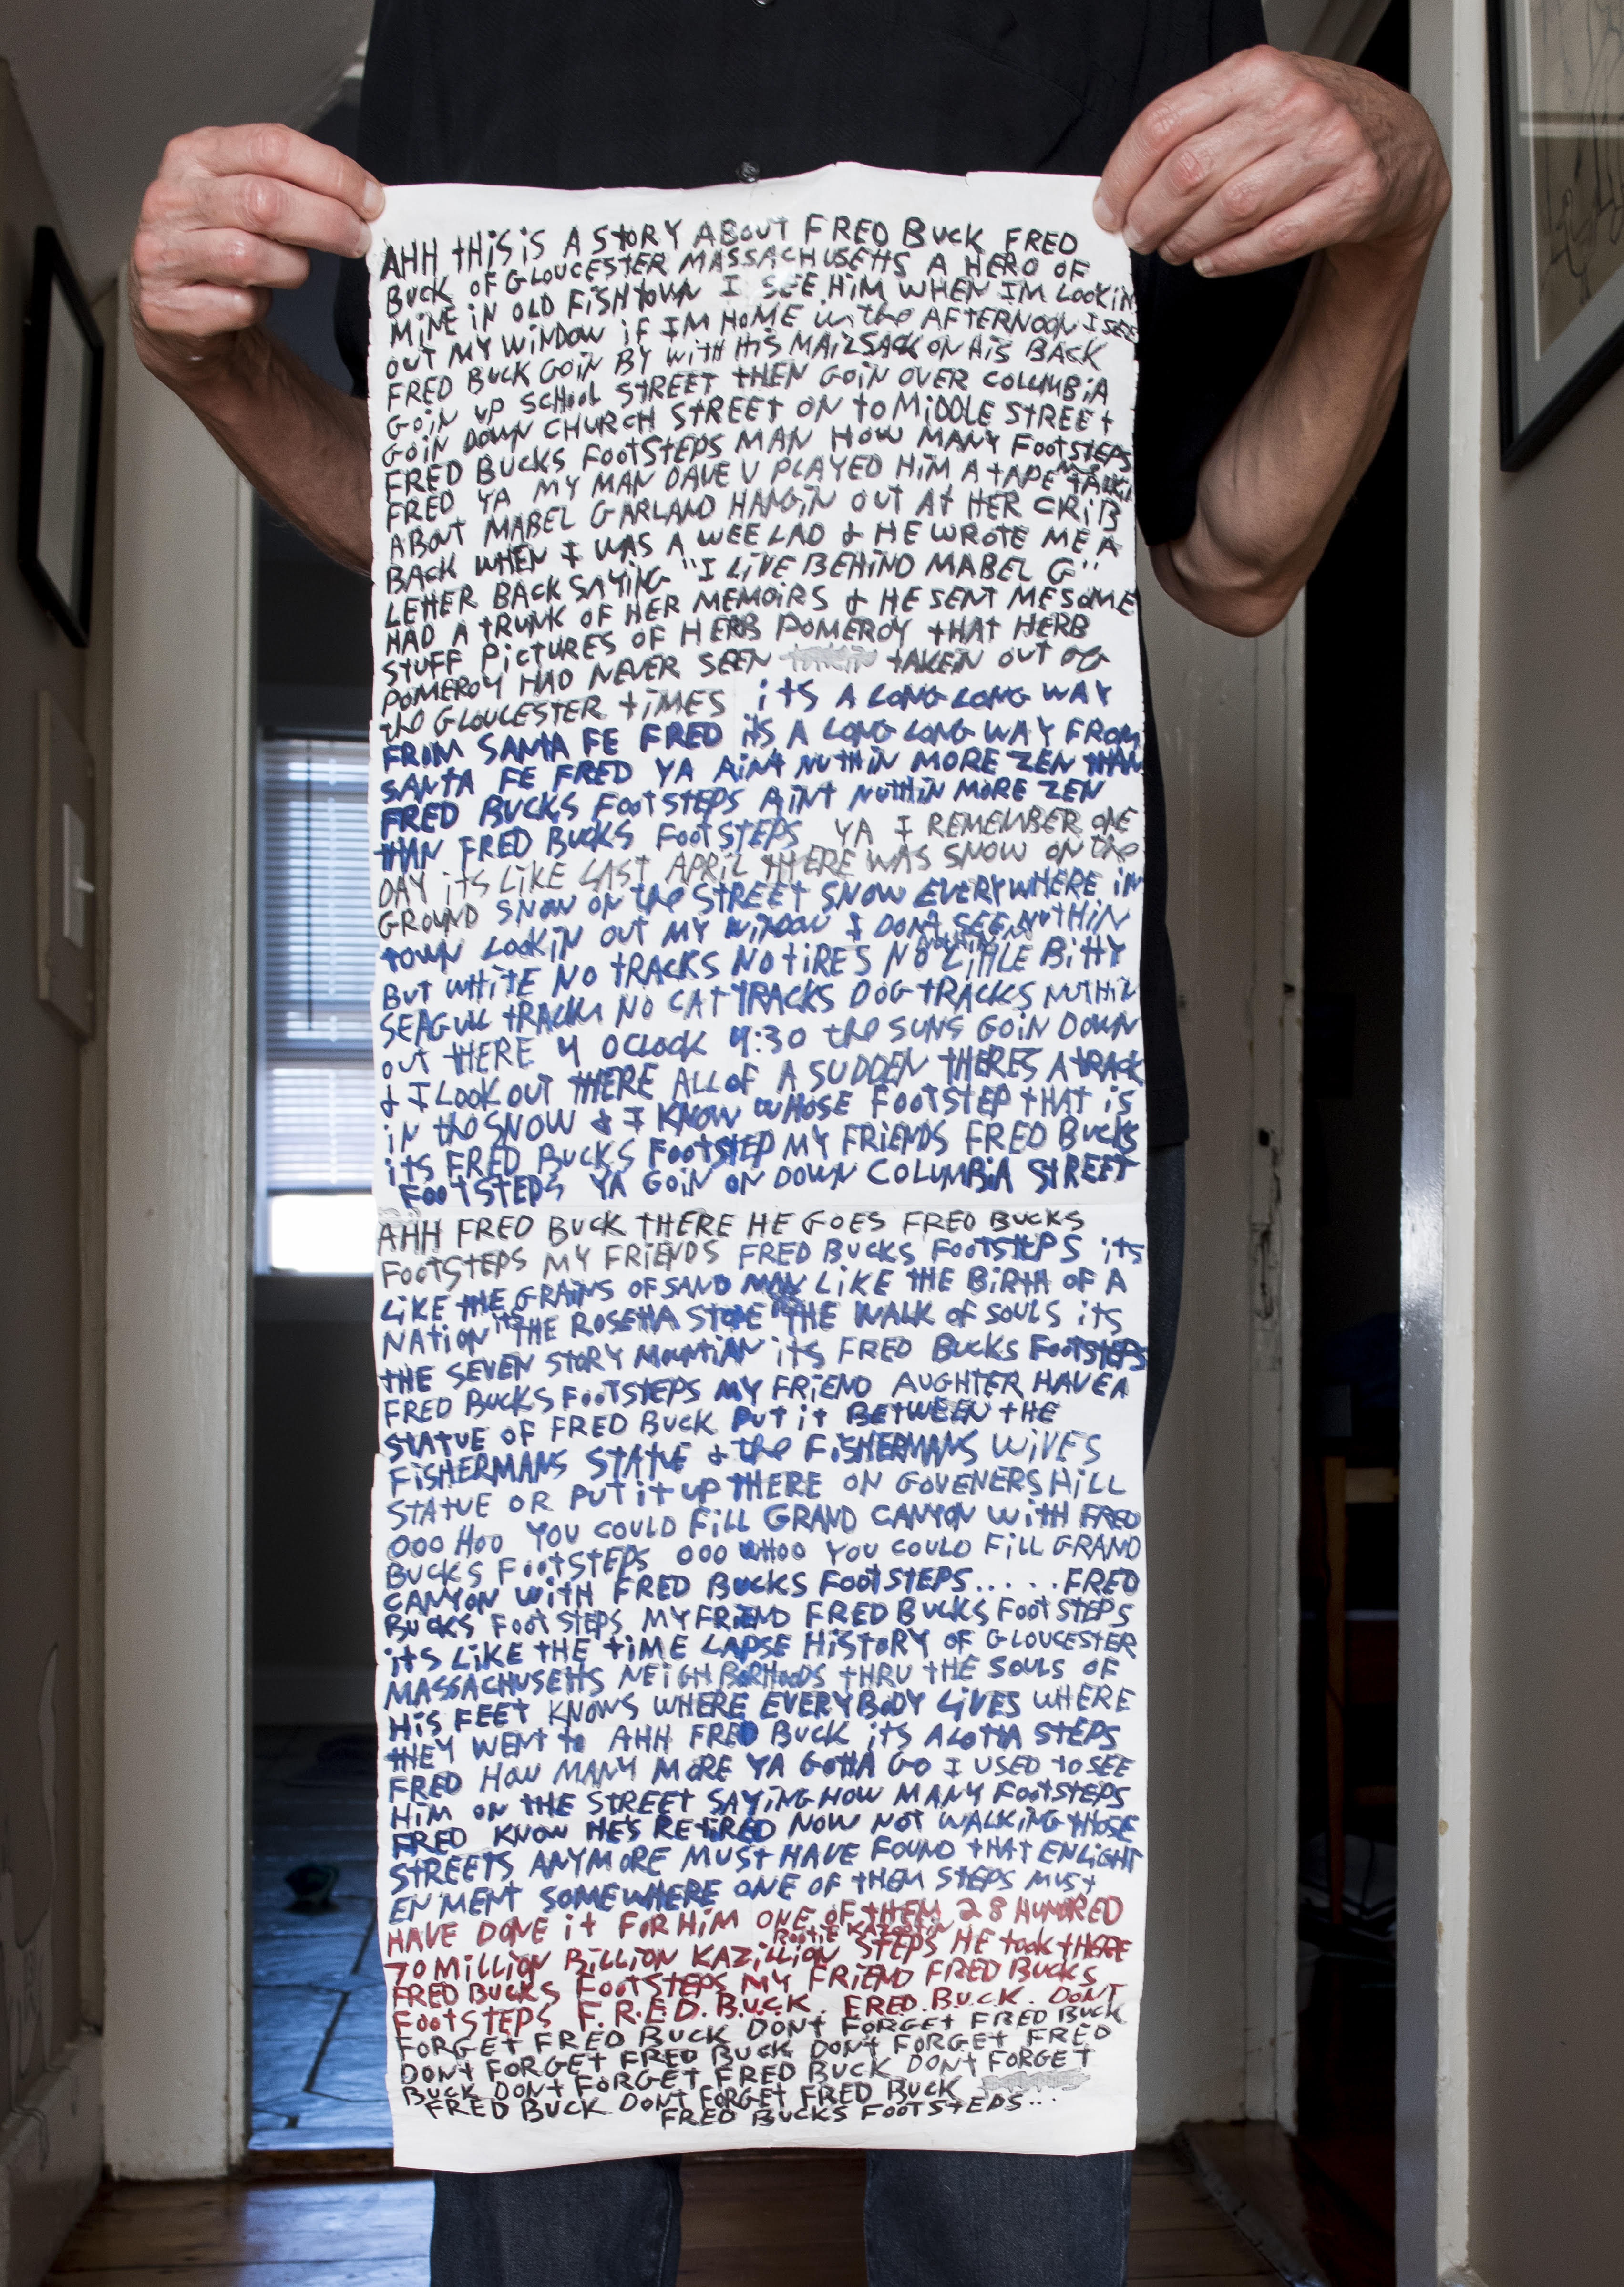 AHH tHiS iS A StORY ABOUT FRED BUCK FRED
BUCK OF GLOUCESTER MASSACHUSEttS A HERO OF
MINE iN OLD FiSHtOWN I SEE HiM WHEN IM LOOKiN
OUT MY WiNDOW iF IM HOME in the AFTERNOON I SEE
FRED BUCK GOiN BY WitH HiS MAiLSACK ON HiS BACK
GOiN UP SCHOOL STREET tHEN GOiN OVER COLUMBiA
GOiN DOWN CHURCH STREET ON tO MiDDLE STREEt
FRED BUCKS FOOtStEPS MAN HOW MANY FOOtStEPS
FRED YA MY MAN DAVE V PLAYED HiM A tAPE tALKi
ABOUT MABEL GARLAND HANGiN OUT At HER CRiB
BACK WHEN I WAS A WEE LAD & HE WROtE ME A
LEttER BACK SAYiNG "I LiVE BEHiND MABEL G"
HAD A tRUNK OF HER MEMOiRS & HE SENt ME SOME
StUFF PiCtURES OF HERB POMEROY tHAt HERB
POMEROY HAD NEVER SEEN tAKEN OUT OF
the GLOUCESTER tiMES itS A LONG LONG WAY
FROM SANtA FE FRED itS A LONG LONG WAY FROM
SANtA FE FRED YA AiNt NUtHiN MORE ZEN tHAN
FRED BUCKS FOOtStEPS AiNt NUtHiN MORE ZEN
tHAN FRED BUCKS FOOtSTEPS YA I REMEMBER ONE
DAY itS LiKE LASt APRiL tHERE WAS SNOW ON the
GROUND SNOW ON the STREEt SNOW EVERYWHERE iN
tOWN LOOKiN OUT MY WiNDOW I DONt SEE NUtHiN
BUt WHitE NO tRACKS NO tiRES NO LittLE BittY
SEAGULL tRACKS NO CAt tRACKS DOG tRACKS NUtHiN
OUt tHERE 4 OCLOCK 4:30 the SUNS GOiN DOWN
& I LOOK OUT tHERE ALL OF A SUDDEN tHERES A tRACK
iN the SNOW & I KNOW WHOSE FOOtSTEP tHAt iS
itS FRED BUCKS FOOtStEP MY FRiENDS FRED BUCKS
FOOtSTEPS YA GOiN ON DOWN COLUMBiA StREEt
AHH FRED BUCK tHERE HE GOES FRED BUCKS
FOOtSTEPS MY FRiENDS FRED BUCKS FOOtStEPS itS
LiKE tHE GRAiNS OF SAND MAN LiKE tHE BiRtH OF A
NAtiON itS tHE ROSEttA StONE tHE WALK OF SOULS itS
tHE SEVEN StORY MOUNtiAN itS FRED BUCKS FOOtStEPS
FRED BUCKS FOOtSTEPS MY FRiEND AUGHtER HAVE A
StAtUE OF FRED BUCK PUt it BEtWEEN tHE
FiSHERMANS StAtUE & the FiSHERMANS WiVES
StAtUE OR PUt it UP tHERE ON GOVENERS HiLL
OOO HOO YOU COULD FiLL GRAND CANYON WitH FRED
BUCKS FOOtSTEPS OOO WHOO YOU COULD FiLL GRAND
CANYON WitH FRED BUCKS FOOtSTEPS.....FRED
BUCKS FOOtSTEPS MY FRiEND FRED BUCKS FOOtStEPS
itS LiKE tHE tiME LAPSE HiStORY OF GLOUCEStER
MASSACHUSEttS NEiGHBORHOODS tHRU tHE SOULS OF
HiS FEEt KNOWS WHERE EVERYBODY LiVES WHERE
tHEY WENt to AHH FRED BUCK itS A LOttA StEPS
FRED HOW MANY MORE YA GOttA GO I USED tO SEE
HiM ON tHE StREEt SAYiNG HOW MANY FOOtStEPS
FRED KNOW HE'S REtiRED NOW NOt WALKiNG tHOSE
StREEtS ANYMORE MUSt HAVE FOUND tHAt ENLiGHt
ENMENt SOMEWHERE ONE OF tHEM StEPS MUSt
HAVE DONE it FOR HiM ONE OF tHEM 28 HUNDRED
70 MiLLiON BiLLiON KAZiLLiON StEPS HE took tHERE
FRED BUCKS FOOtSTEPS MY FRiEND FRED BUCKS
FOOtSTEPS F.R.E.D.B.U.C.K. FRED.B.U.C.K. DONt
FORGEt FRED BUCK DONt FORGEt FRED BUCK
DONt FORGEt FRED BUCK DONt FORGEt FRED
BUCK DONt FORGEt FRED BUCK DONt FORGEt
FRED BUCK DONt FORGEt FRED BUCK
FRED BUCKS FOOtStEPS...